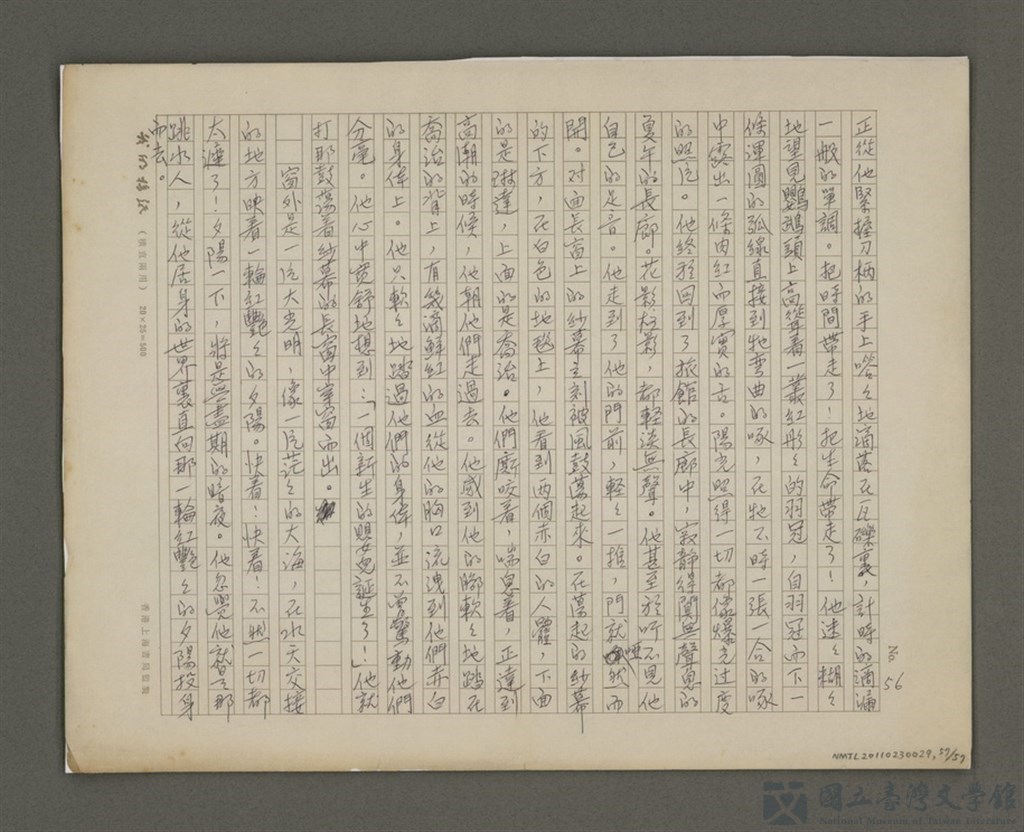 No. 56
正從他緊握刀柄的手上嗒々地滴落在瓦礫裏,計時的滴漏
一般的單調。把時間帶走了!把生命帶走了!他迷々糊々
地望見鸚鵡頭上高聳着一叢紅彤々的羽冠,自羽冠而下一
條渾圓的弧線直接到牠弯曲的喙,在牠不時一張一合的喙
中露出一條肉紅而厚實的舌。陽光照得一切都像爆光过度
的照片。他終於回到了旅館的長廊中,寂靜得闃無聲息的
夏午的長廊。花影柱影,都輕淡無聲。他甚至於听不見他
自己的足音。他走到了他的門前,輕々一推,門就啞然而
開。对面長窗上的紗幕立刻被風鼓蕩起來。在蕩起的紗幕
的下方,在白色的地毯上,他看到两個赤白的人體,下面
的是琳達,上面的是喬治。他們廝咬着,喘息着,正達到
高潮的時候,他朝他們走過去。他感到他的腳軟々地踏在
喬治的背上,有幾滴鮮紅的血從他的胸口流洩到他們赤白
的身体上。他只軟々地踏過他們的身体,並不曾驚動他們
分毫。他心中寬舒地想到:「一個新生的嬰兒誕生了!」他就
打那鼓蕩着紗幕的長窗中穿窗而出。
窗外是一片大光明,像一片茫々的大海,在水天交接
的地方映着一輪紅艷々的夕陽。快着!快着!不然一切都
太遲了!夕陽一下,將是無盡期的暗夜。他忽覺他就是那
跳水人,從他居身的世界裏直向那一輪紅艷々的夕陽投身
而去。
(橫直兩用) 20×25=500
香港上海書局監製
NMTL20110230029, 57/57
國立臺灣文學館
National Museum of Taiwan Literature